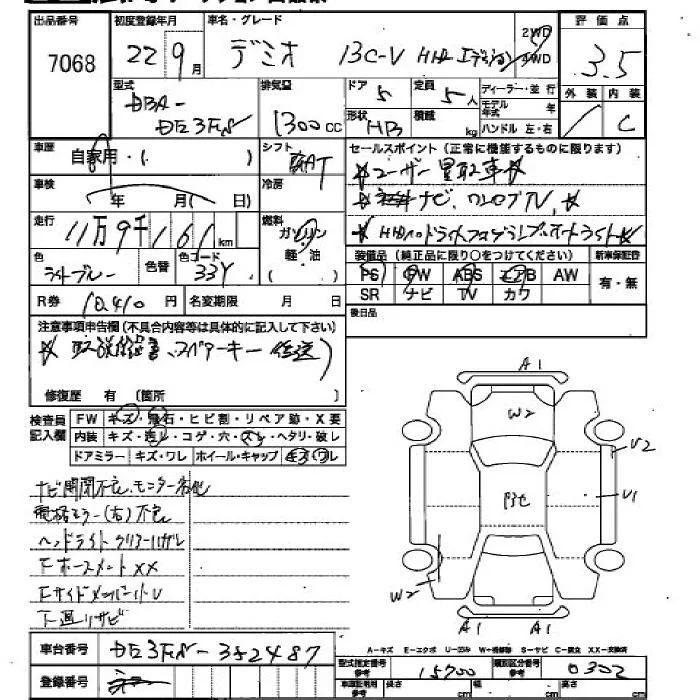 出品番号 初度登録年月 車名・グレード 評価点
7068 22 9月 デミオ 13C-V HIDエディション 2WD 4WD 3.5
型式 排気量 ドア 定員 ディーラー・並行 外装 内装
DBA- 5 5人 モデル年式 年 C
DE3FS 1300cc 形状 HB 積載 kg ハンドル 左・右
車歴 自家用・( シフト AT セールスポイント(正常に機能するものに限ります)
☆ユーザー買取車☆
車検 年 月( 日) 冷房
ナビ、ワンセグTV、☆
走行 11万9千161km 燃料 ガソリン 軽・油
色 ライトブルー 色替 色コード 33Y
装備品(純正品に限り○をつけてください) 新車保証書
PS PW ABS エアB AW 有・無
SR ナビ TV カワ
R券 10,410円 名変期限 月 日
後日品
注意事項申告欄(不具合内容等は具体的に記入して下さい)
☆ 取説、保証書、スペアーキー 後送)
修復歴 有 (箇所 )
検査員記入欄 FW キズ・飛石・ヒビ割・リペア跡・X要
内装 キズ・・コゲ・穴・スレ・ヘタリ・破レ
ドアミラー キズ・ワレ ホイール・キャップ キズ ワレ
ナビ開閉不良、モニター
ミラー(右)不良
ヘッドライトクリアーハガレ
F ホースメント XX
F サイドメンバー U
下廻リサビ
A1
W2
U2
U1
W2
A1 A1
A-キズ E-エクボ U-凹み W-補修跡 S-サビ C-腐食 XX-交換済
車台番号 DE3FS-352487
登録番号
型式指定番号 参考 15700 類別区分番号 参考 0302
車庫証明用 参考 長さ cm 幅 cm 高さ cm